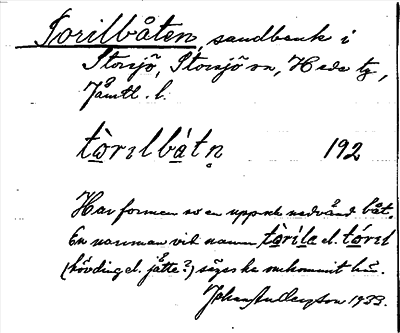 Torilbåten, sandbank i
Storsjö, Storsjö sn, Hede tg,
Jämtl. l.
tòrılbátn̥ 192
Har formen av en uppochnedvänd båt.
En norrman vid namn tòrila el. tórıl
(hövding el. jätte?) säges ha omkommit här.
Johan Anderson 1933.